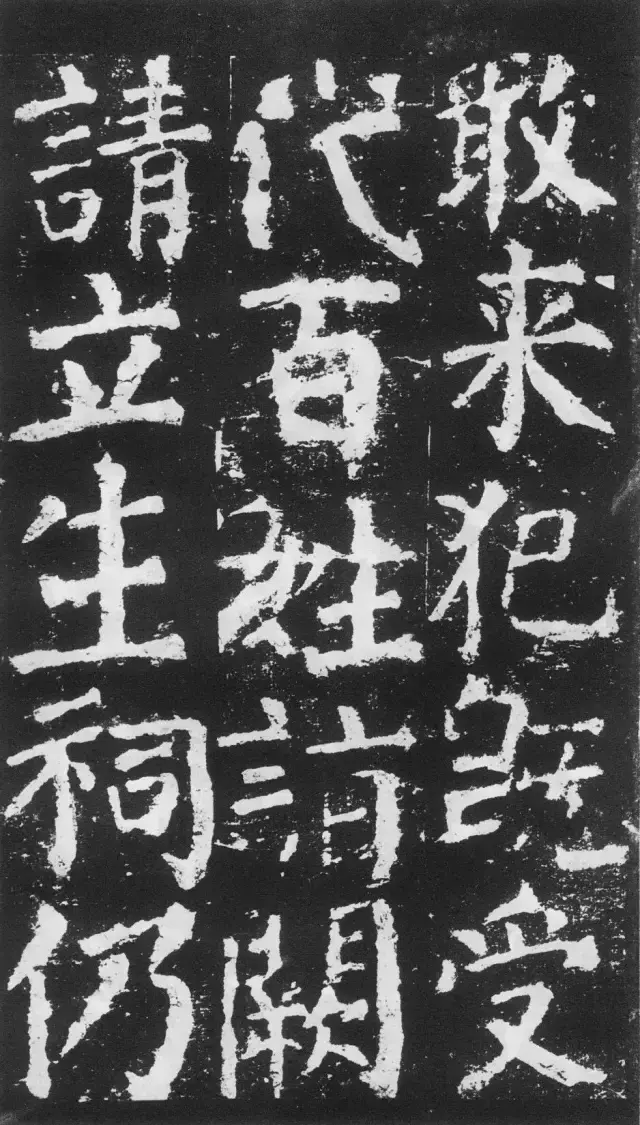 敢来犯既受
代百姓詣闕
請立生祠仍